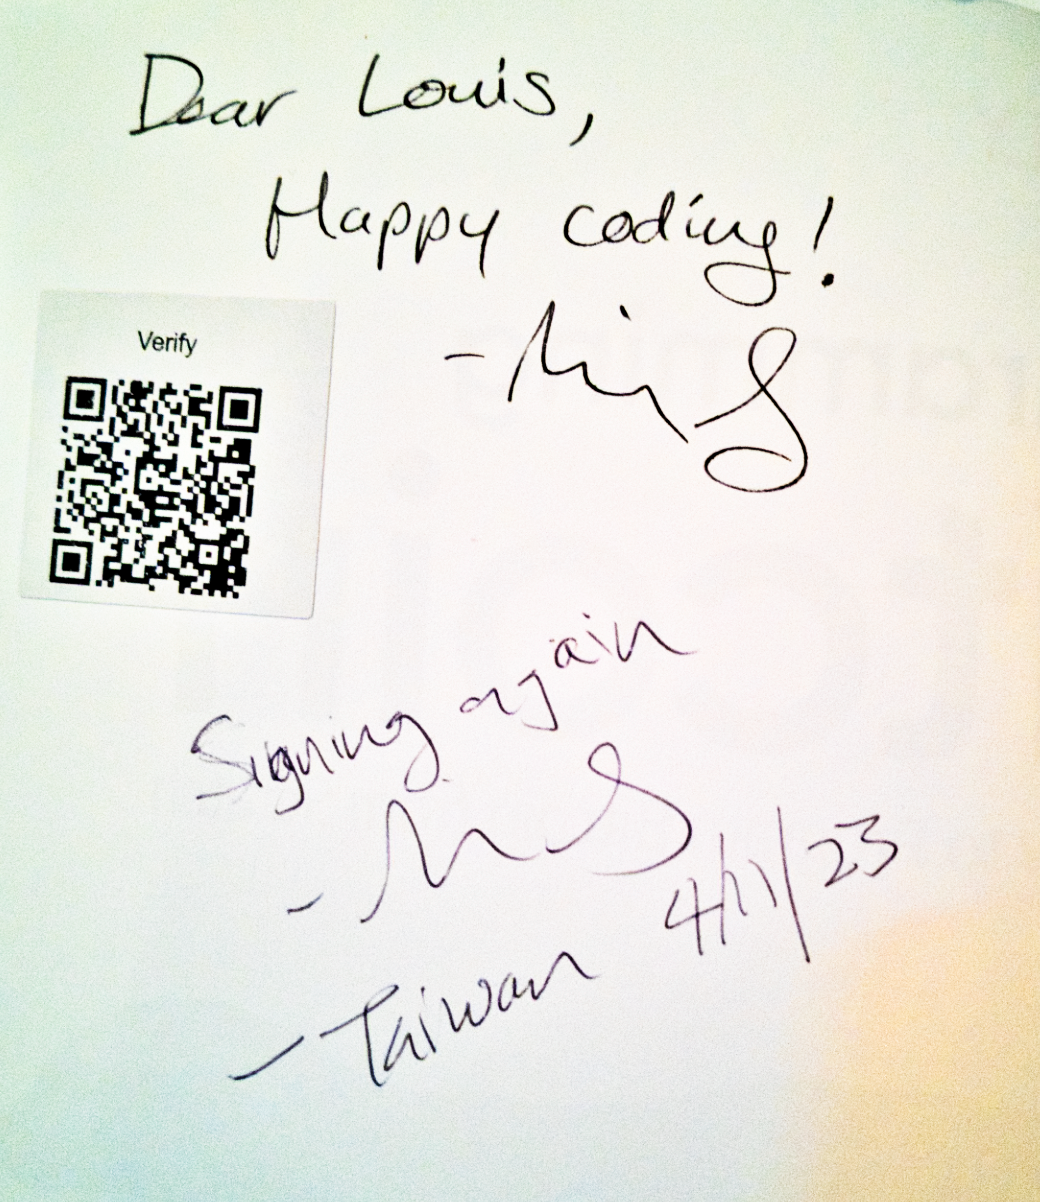 Dear Louis,
Happy coding!
Verify
Signing again
4/11/23
- Taiwan